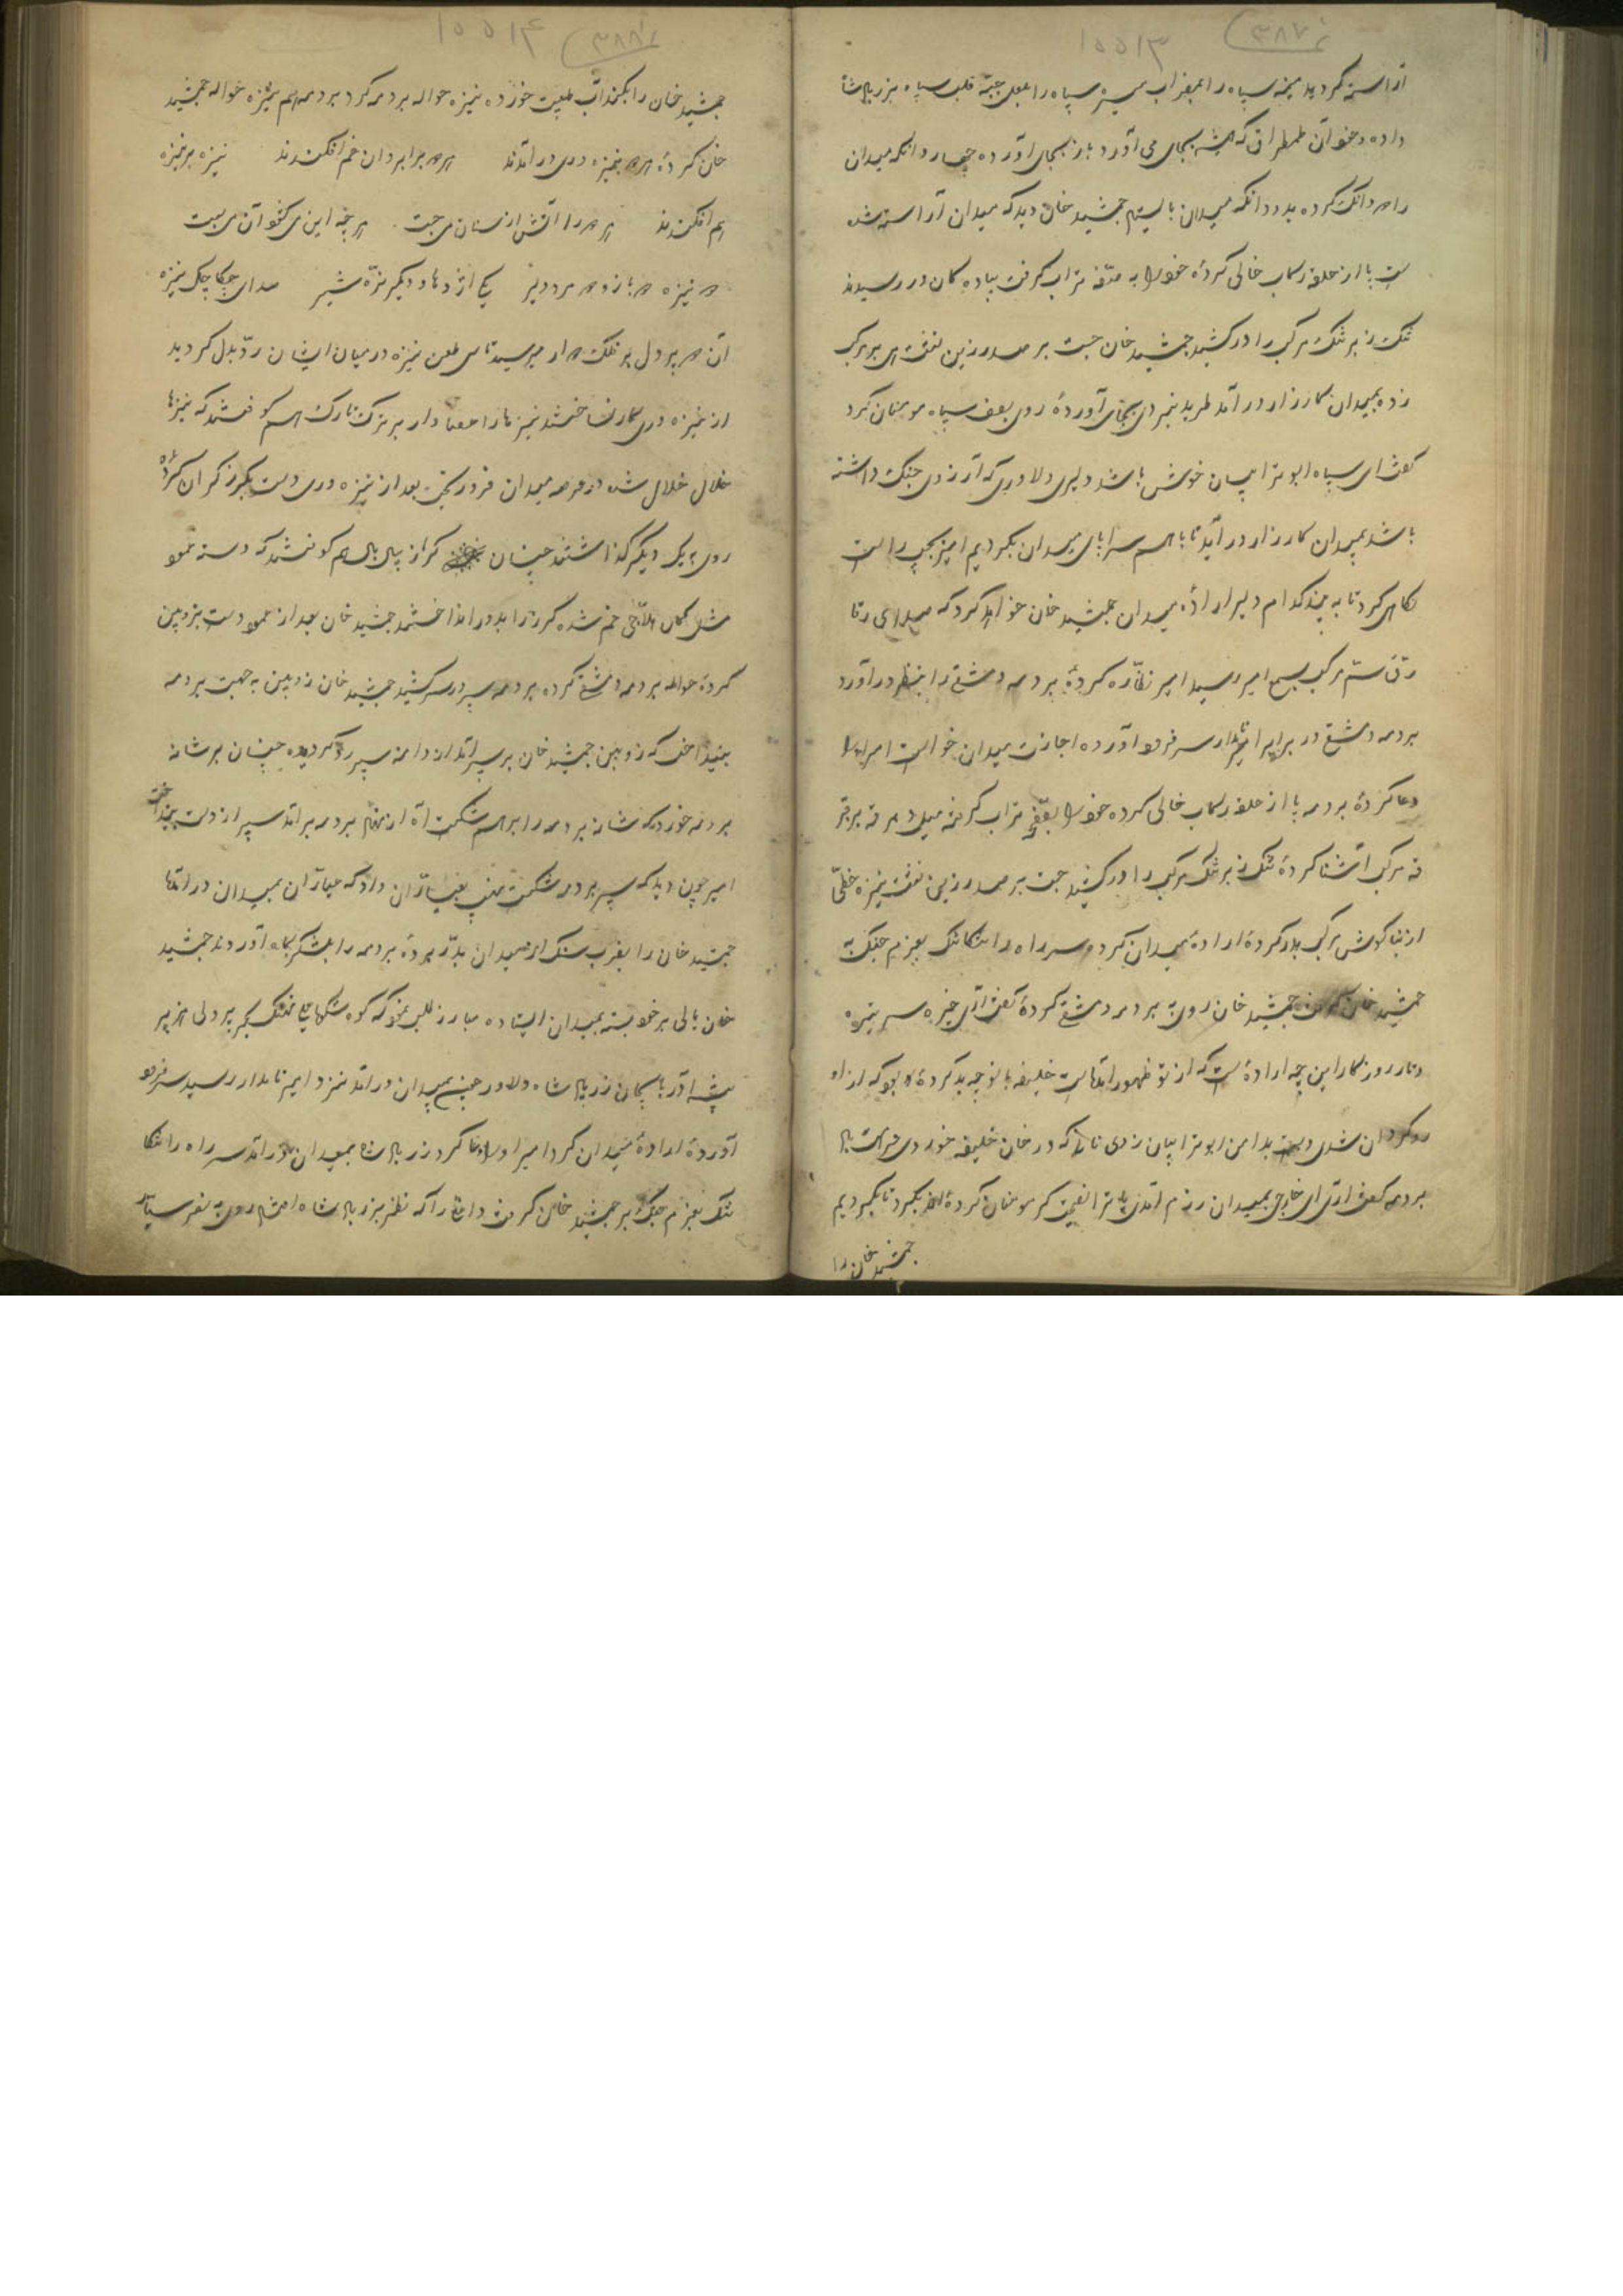 ۳۸۷
۱۵۵۱۳
آراسته گردید میمنه سپاه را بمضراب میسره سپاه را بلعل جبه قلب سپاه بزریال شا
داده و خود آن طمطراق که همیشه بجای می آورد باز بجای آورده چهار دانکه میدان
را دو دانک کرده بدو دانکه میدان بایستیم جمشید خان دید که میدان آراسته شده
ست پا از حلقه رکاب خالی کردهٔ خود را به تراب گرفت پیاده کان در رسیدند
تنک زبر تنک مرکب را در کشید جمشید خان جست بر صدر زین نشت هی بر مرکب
زده بمیدان کارزار در آمد طرید نبردی بجای آوردهٔ روی بصف سپاه مومنان کرد
گفت ای سپاه ابو ترابیان خوش باشد دلیری دلاوری که آرزوی جنک داشته
باشد بمیدان کارزار در آید تا با هم سراپای میدان بگردیم امیر بچپ راست
نگاه کرد تا به بیند کدام دلیر ارادهٔ میدان جمشید خان خواهد کرد که صدای رقا
رق سم مرکب بسمع امیر رسید امیر نظاره کردهٔ بردمه دمشقی را بنظر در آورد
بردمه دمشقی در برابر امیر نامدار سر فرود آورده اجازت میدان خواست امیر او را
دعا کردهٔ بردمه پا از حلقه رکاب خالی کرده خود را تراب گرفته
مرکب آشنا کردهٔ تنک زبر تنک مرکب را در کشید جست بر صدر زین نشت نیزه خطی
از بنا گوش مرکب بدر کردهٔ ارادهٔ میدان کرد و سر راه را تنکا تنک بعزم جنک به
جمشید خان گرفت جمشید خان روی به بردمه دمشقی کردهٔ گفت ای خیره سر تیره
و تار روزگار این چه ارادهٔ ست که از تو ظهور آمده است خلیفه با تو چه بد کردهٔ بود که از او
رو گردان شدی دست بدامن ابو ترابیان زدی نانی که در خان خلیفه خوردی
بردمه گفت ای خارجی بمیدان رزم آمدی یا ترا نصیحت گر مومنان کردهٔ بگرد تا بگردیم
جمشید خان را
۳۸۸
۱۵۵۱۴
جمشید خان را خورده نیزه حواله بردمه کرد بردمه هم نیزه حواله جمشید
خان کردهٔ هر دو بنیزه وری در آمدند هر دو برابر وان خم افکندند نیزه بر نیزه
هم افکندند هر دو را آتش از سنان می جست هر چه این می کشود آن می بست
دو نیزه دو بازو دو مرد دلیر یکی اژدها و دیگر نره شیر صدای چکاچک نیزه
آن دو پر دل بر فلک دوار میرسید تا سی طعن نیزه در میان ایشان رد بدل گردید
از نیزه وری کار نساختند نیزها را عصا وار بر ترک تارک هم کوفتند که نیزها
خلال خلال شده در عرصه میدان فرو ریخت بعد از نیزه وری دست بگرز گران کردهٔ
روی به یک دیگر گذاشتند چنان گرز از یال بال هم کوفتند که دسته عمود
مثل کمان حلاجی خم شده گرز را بدور انداختند جمشید خان بعد از عمود دست بزوبین
کردهٔ حواله بردمه دمشقی کرده بردمه سپر در سر کشید جمشید خان زوبین به جهت بردمه
بینداخت که زوبین جمشید خان بر سپر آمد از دامنه سپر رد گردیده چنان بر شانه
بردمه خورد که شانه بردمه را برهم شکست آه از نهاد بردمه برآمد سپر از دست بینداخت
امیر چون دید که سپر بردمه شکست نهیب بعیاران داد که عیاران بمیدان در آمدها
جمشید خان را بضرب سنک از میدان بدر بردهٔ بردمه را بلشکرگاه آوردند جمشید
خان بالی بر خود بسته بمیدان ایستاده مبارز طلب نمود که کوه شکوهای نهنگ بحر پر دلی هزبر
بیشه آذربایجان زریال شاه دلاور بمیدان در آمد نزد امیر نامدار رسید سر فرود
آوردهٔ ارادهٔ میدان کرد امیر او را دعا کرد زریال شاه بمیدان در آمد سر راه را تنکا
تنک بعزم جنک بر جمشید خان گرفت و اما را که نظر بزریال شاه افتاد روی بنفر سیار